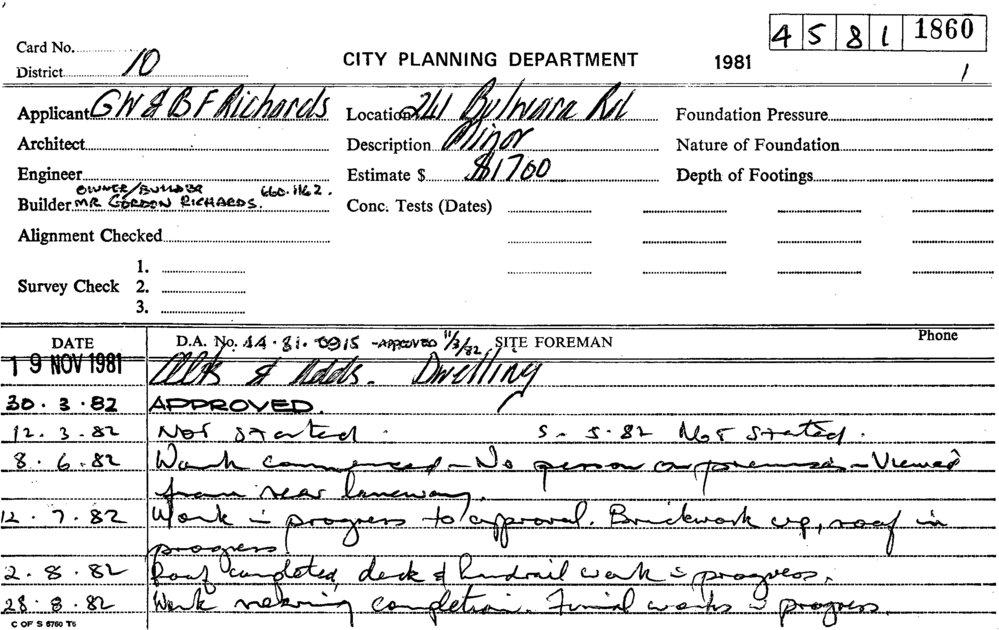 4 5 8 1 1860
Card No.
District 10
CITY PLANNING DEPARTMENT
1981
1
Applicant G W & B F Richards
Location 241 Bulwara Rd
Foundation Pressure
Architect
Description Minor
Nature of Foundation
Engineer
Estimate $ $1700
Depth of Footings
OWNER/BUILDER 660.1162.
Builder MR GORDON RICHARDS.
Conc. Tests (Dates)
Alignment Checked
1.
Survey Check 2.
3.
DATE
D.A. No. 44.81.0915 -APPROVED 11/3/82
SITE FOREMAN
Phone
19 NOV 1981 Alts & Adds. Dwelling
30.3.82 APPROVED.
12.3.82 Not started. 5-5.82 Not Started.
8.6.82 Work commenced - No person on premises - Viewed
from rear laneway.
12.7.82 Work in progress to approval. Brickwork up, roof in
progress
2.8.82 Roof completed, deck & handrail work in progress.
28.8.82 Work nearing completion. Final works in progress.
C OF S 6760 T6